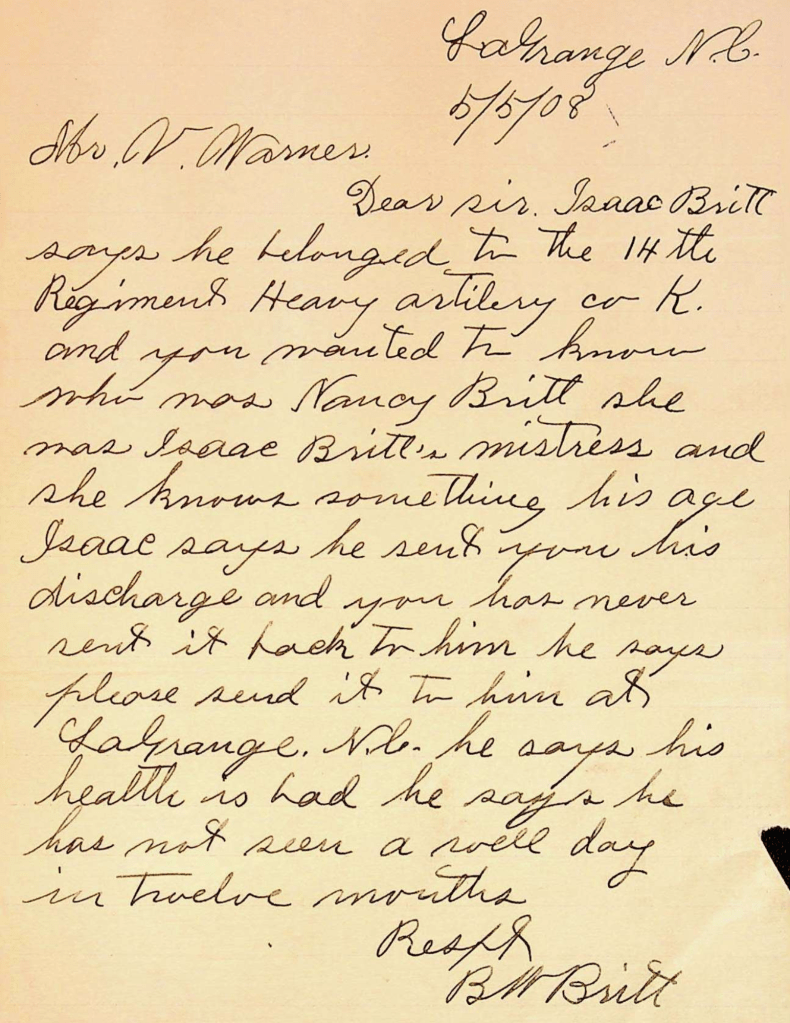 LaGrange N.C.
5/5/08
Mr. V. Warner.
Dear sir. Isaac Britt
says he belonged to the 14th
Regiment Heavy artilery co K.
and you wanted to know
who was Nancy Britt she
was Isaac Britt's mistress and
she knows something his age
Isaac says he sent you his
discharge and you has never
sent it back to him he says
please send it to him at
LaGrange. N.C. he says his
health is bad he says he
has not seen a well day
in twelve months
Respt
B W Britt